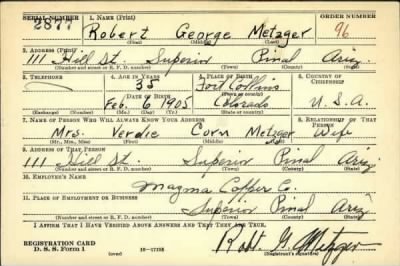 SERIAL NUMBER 1. NAME (Print) ORDER NUMBER
2877 Robert George Metzger 96
(First) (Middle) (Last)
2. ADDRESS (Print)
111 Hill St. Superior Pinal Ariz.
(Number and street or R. F. D. number) (Town) (County) (State)
3. TELEPHONE 4. AGE IN YEARS 5. PLACE OF BIRTH 6. COUNTRY OF CITIZENSHIP
35 Fort Collins
(Town or county)
DATE OF BIRTH
Feb. 6 1905 Colorado U.S.A.
(Exchange) (Number) (Mo.) (Day) (Yr.) (State or country)
7. NAME OF PERSON WHO WILL ALWAYS KNOW YOUR ADDRESS 8. RELATIONSHIP OF THAT PERSON
Mrs. Verdie Metzger Wife
(Mr., Mrs., Miss) (First) (Middle) (Last)
9. ADDRESS OF THAT PERSON
111 Hill St. Superior Pinal Ariz.
(Number and street or R. F. D. number) (Town) (County) (State)
10. EMPLOYER'S NAME
Magma Copper Co.
11. PLACE OF EMPLOYMENT OR BUSINESS
Superior Pinal Ariz
(Number and street or R. F. D. number) (Town) (County) (State)
I AFFIRM THAT I HAVE VERIFIED ABOVE ANSWERS AND THAT THEY ARE TRUE.
REGISTRATION CARD
D. S. S. Form 1 (over) 16—17105 Robt. G. Metzger
(Registrant's signature)